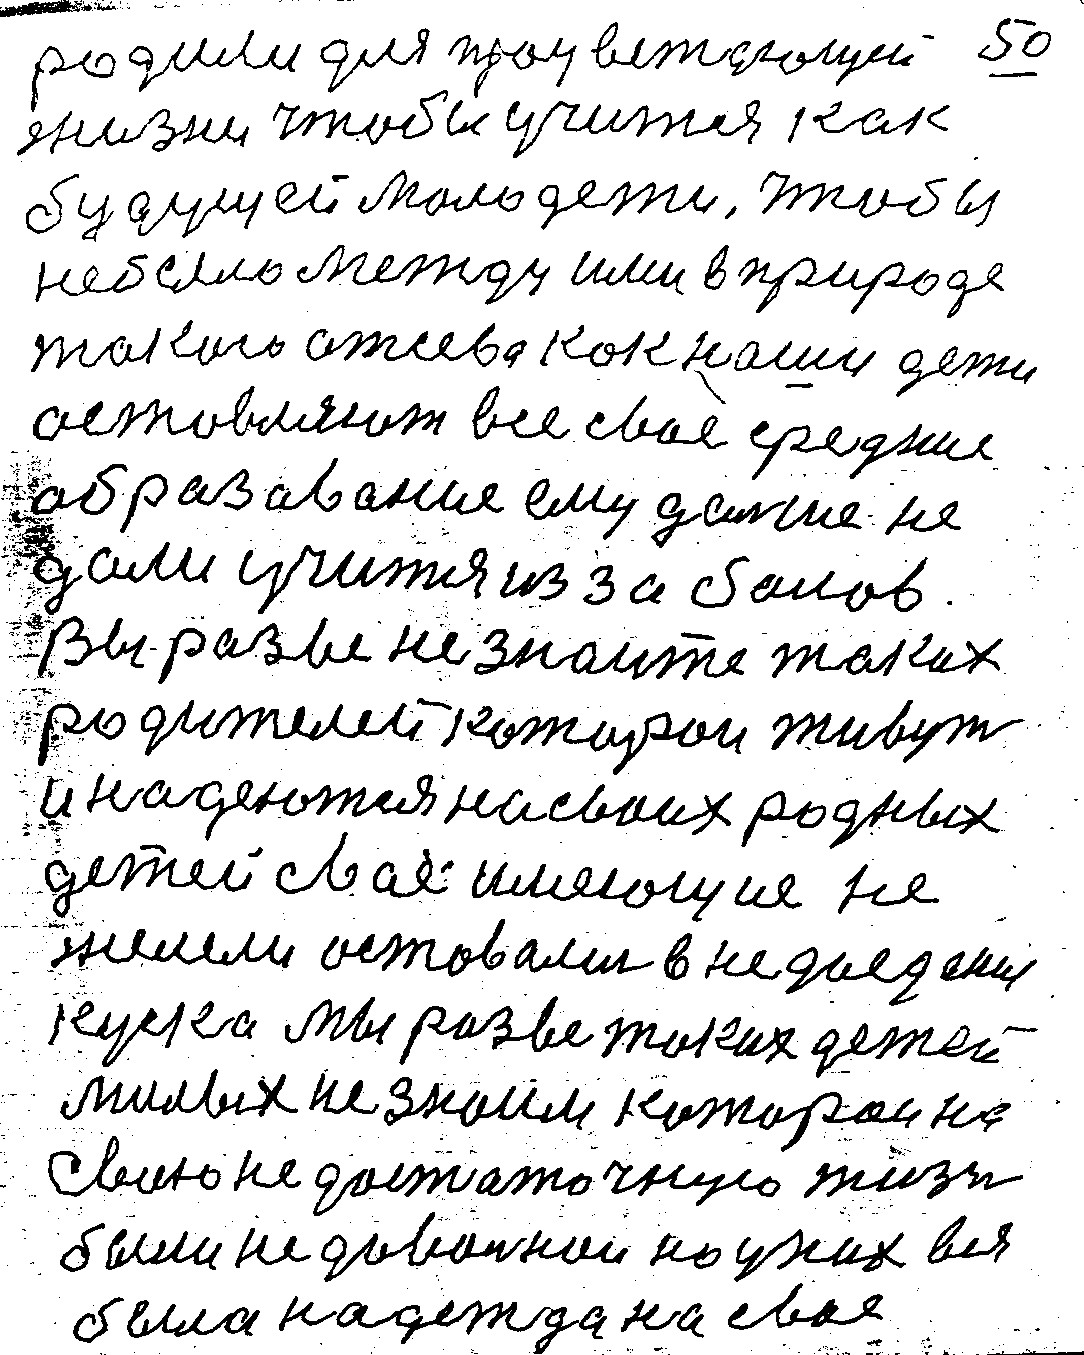 родили для процветающей 50
жизни чтобы учится как
будущей молодежи, чтобы
небыло между ими в природе
такого как наши дети
оставляют все своё средние
образавание ему даже не
дали учится из за балов.
Вы разве не знаите таких
родителей каторои живут
и надеются на своих родных
детей сваё имеющие не
жилели оставались в недоедении
куска мы разве таких детей
милых не знаим котораи на
Свою не достаточную жизн
были не довольнои но у них вся
была надежда на свое